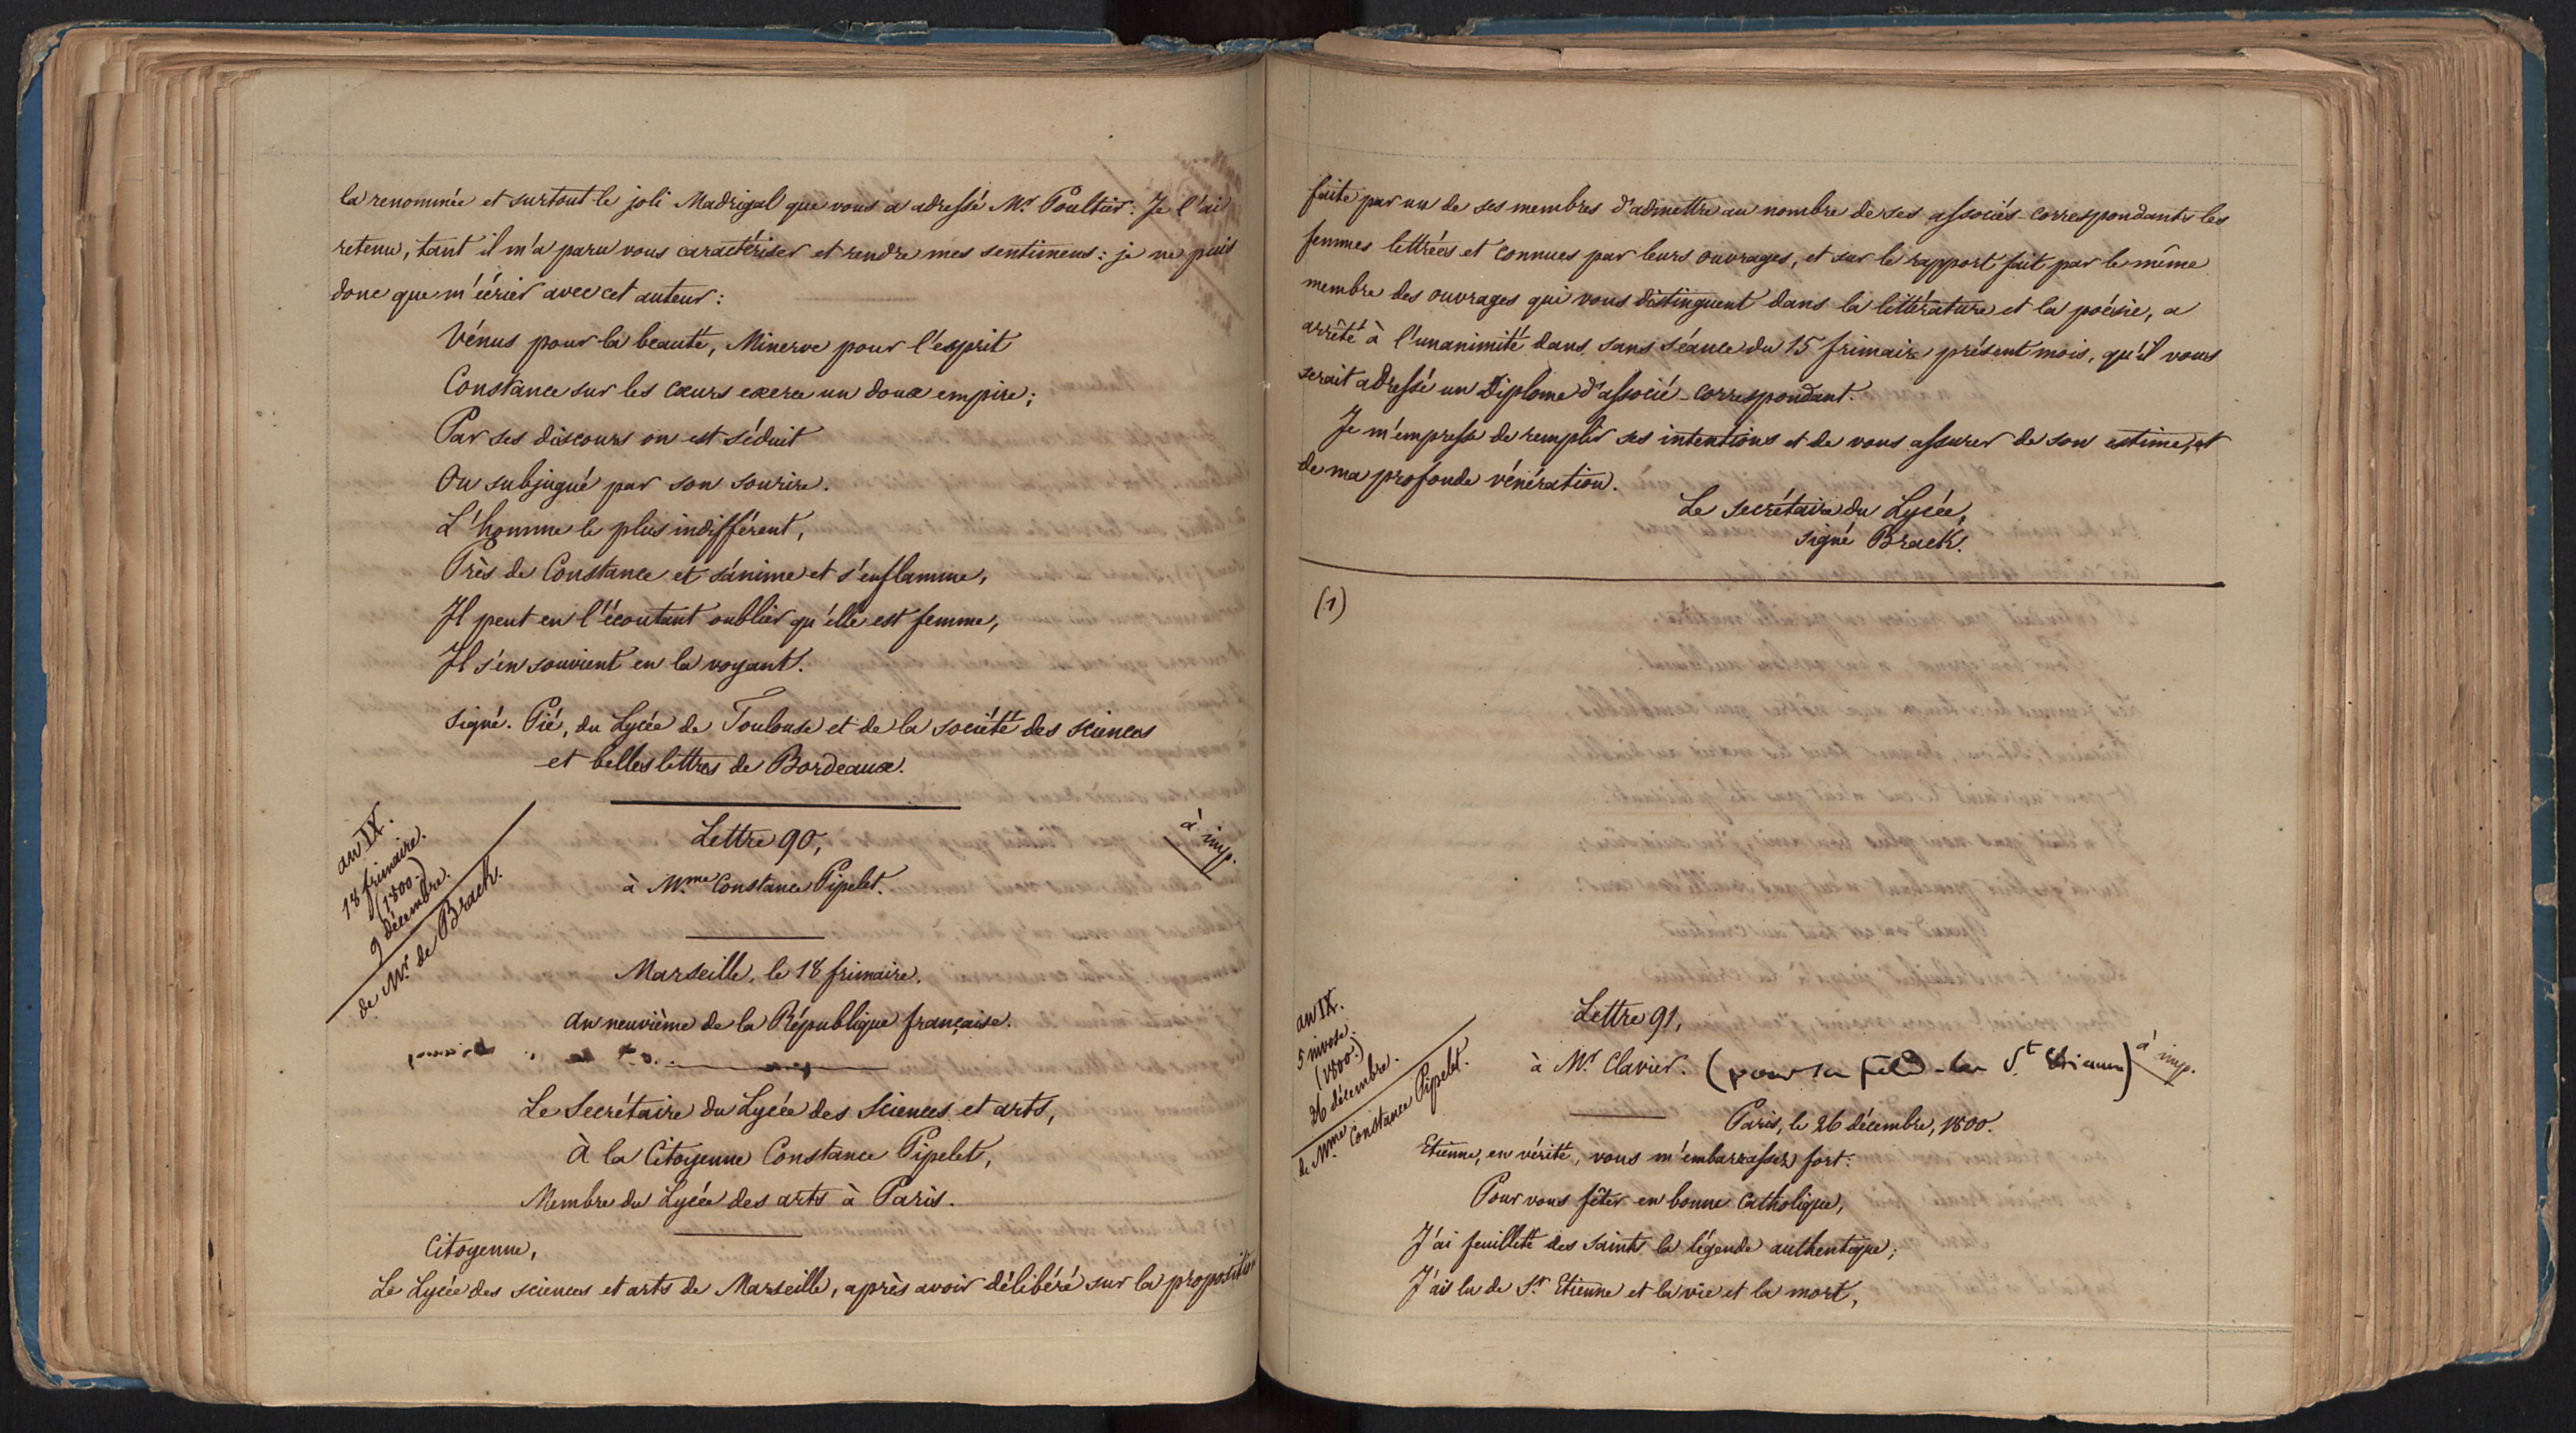 la renommée et surtout le joli Madrigal que vous a adressé Mr. Poultier. Je l'ai
retenu, tant il m'a paru vous caractériser et rendre mes sentimens : je ne puis
donc que m'écrier avec cet auteur :
Vénus pour la beauté, Minerve pour l'esprit
Constance sur les cœurs exerce un doux empire ;
Par ses discours on est séduit
Ou subjugué par son sourire.
L'homme le plus indifférent,
Près de Constance et s'anime et s'enflamme,
Il peut en l'écoutant oublier qu'elle est femme,
Il s'en souvient en la voyant.
signé. Pié, du Lycée de Toulouse et de la société des sciences
et belles lettres de Bordeaux.
an IX.
18 frimaire.
(1800.)
9 décembre.
de Mr. de Brack.
Lettre 90,
à imp.
à Mme. Constance Pipelet.
Marseille, le 18 frimaire,
an neuvième de la République française.
Le Secrétaire du Lycée des Sciences et arts,
À la Citoyenne Constance Pipelet,
Membre du Lycée des arts à Paris.
Citoyenne,
Le Lycée des sciences et arts de Marseille, après avoir délibéré sur la proposition
faite par un de ses membres d'admettre au nombre de ses associés-correspondants les
femmes lettrées et connues par leurs ouvrages, et sur le rapport fait par le même
membre des ouvrages qui vous distinguent dans la littérature et la poésie, a
arrêté à l'unanimité dans sans séance du 15 frimaire présent mois, qu'il vous
serait adressé un Diplome d'associé-correspondant.
Je m'empresse de remplir ses intentions et de vous assurer de son estime, et
de ma profonde vénération.
Le secrétaire du Lycée,
signé Brack.
(1)
an IX.
5 nivose.
(1800.)
26 décembre.
de Mme. Constance Pipelet.
Lettre 91,
à Mr. Clavier. (pour sa fête la St. Etienne)
à imp.
Paris, le 26 décembre, 1800.
Etienne, en vérité, vous m'embarrassez fort :
Pour vous fêter en bonne Catholique,
J'ai feuilleté des Saints la légende authentique ;
J'ai lu de St. Etienne et la vie et la mort,